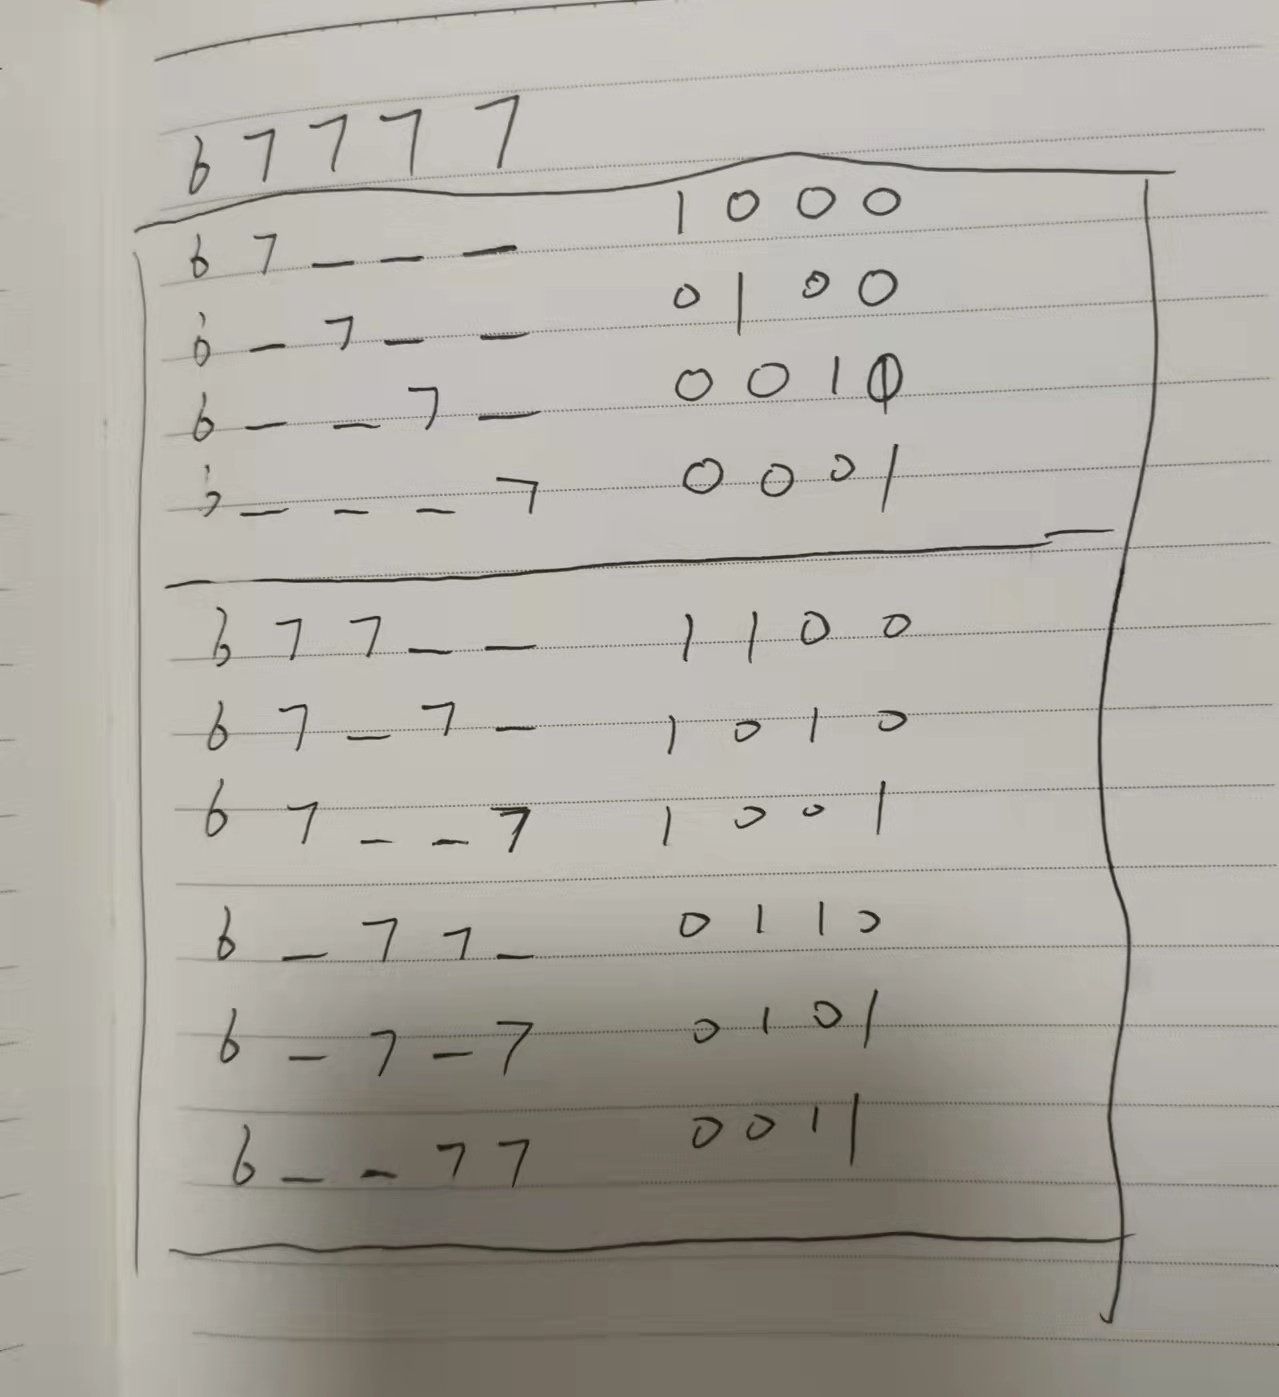 6 7 7 7 7
6 7 _ _ _ 1 0 0 0
6 _ 7 _ _ 0 1 0 0
6 _ _ 7 _ 0 0 1 0
6 _ _ _ 7 0 0 0 1
6 7 7 _ _ 1 1 0 0
6 7 _ 7 _ 1 0 1 0
6 7 _ _ 7 1 0 0 1
6 _ 7 7 _ 0 1 1 0
6 _ 7 _ 7 0 1 0 1
6 _ _ 7 7 0 0 1 1